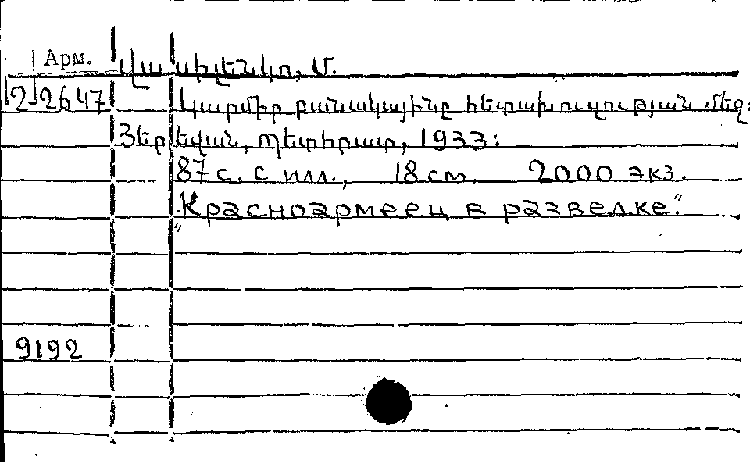 Арм. Վասիլենկո, Մ.
2-2647 Կարմիր բանակայինը հետախուզության մեջ:
Յերեվան, Պետհրատ, 1933:
87 с. с илл., 18 см. 2000 экз.
„Красноармеец в разведке“.
9192